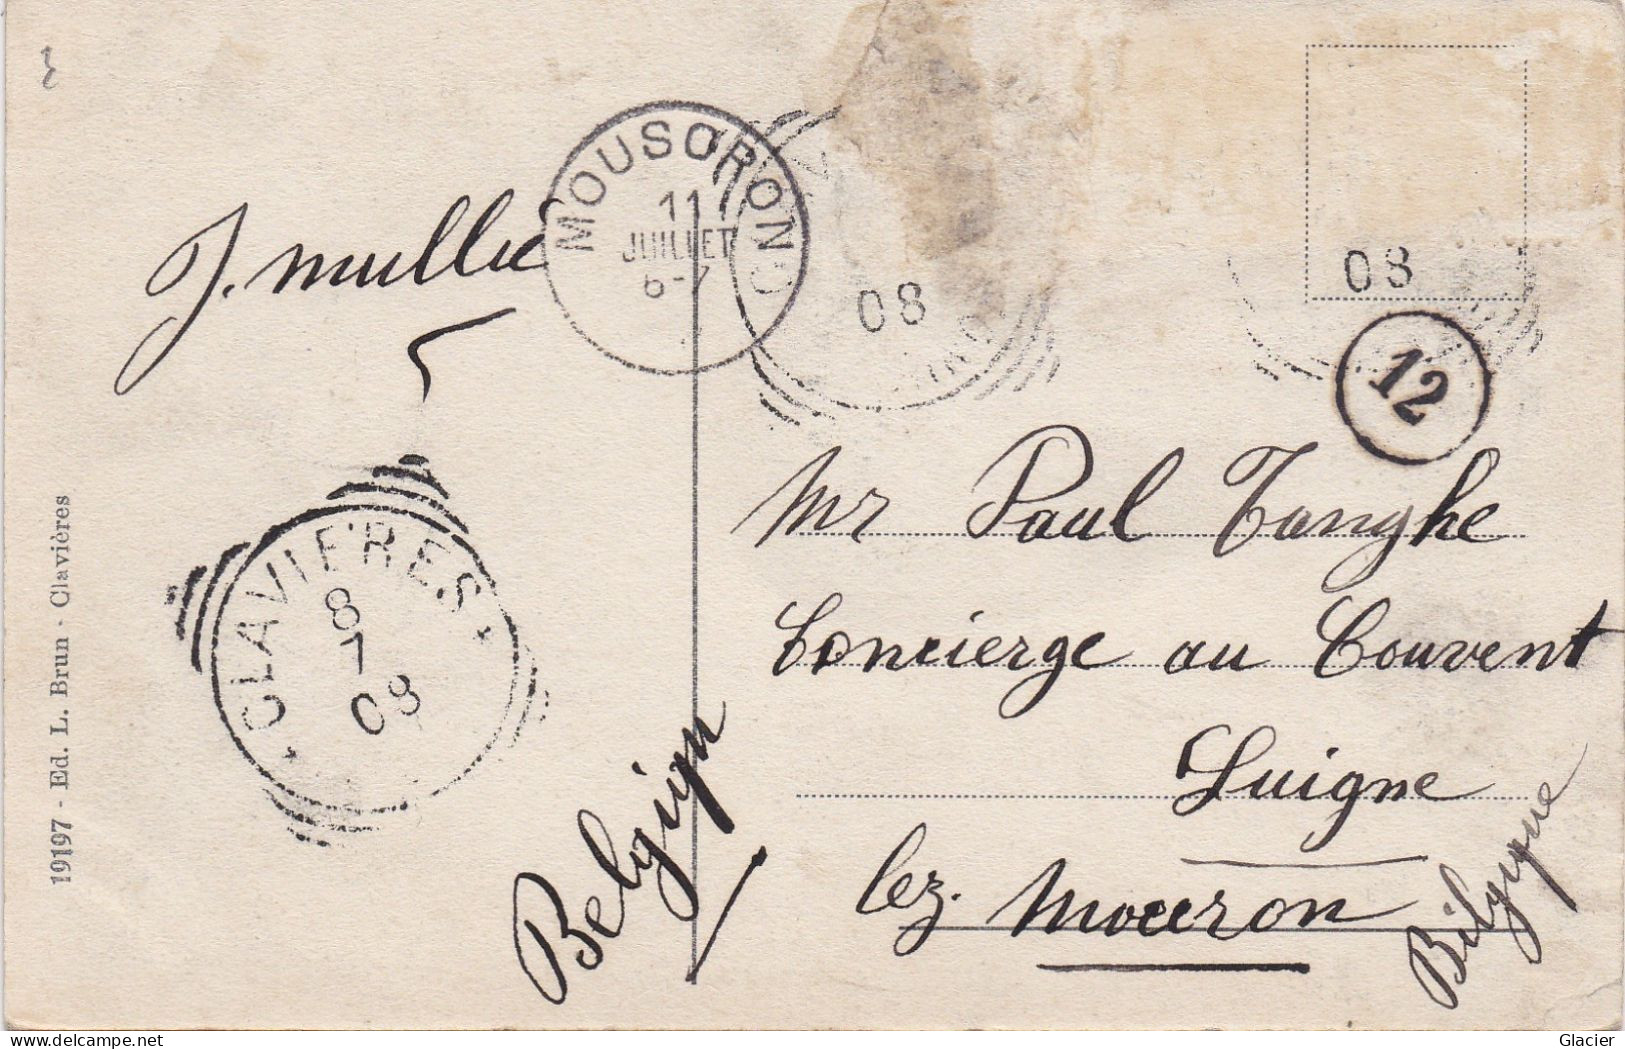 J. Mullie
MOUSCRON
11
JUILLET
6-7
08
08
12
CLAVIERES
8
7
08
Mr Paul Tanghe
Concierge au Couvent
Luigne
lez. Moucron
Belgique
Belgique
19197 - Ed. L. Brun - Clavières
delcampe.net
Glacier